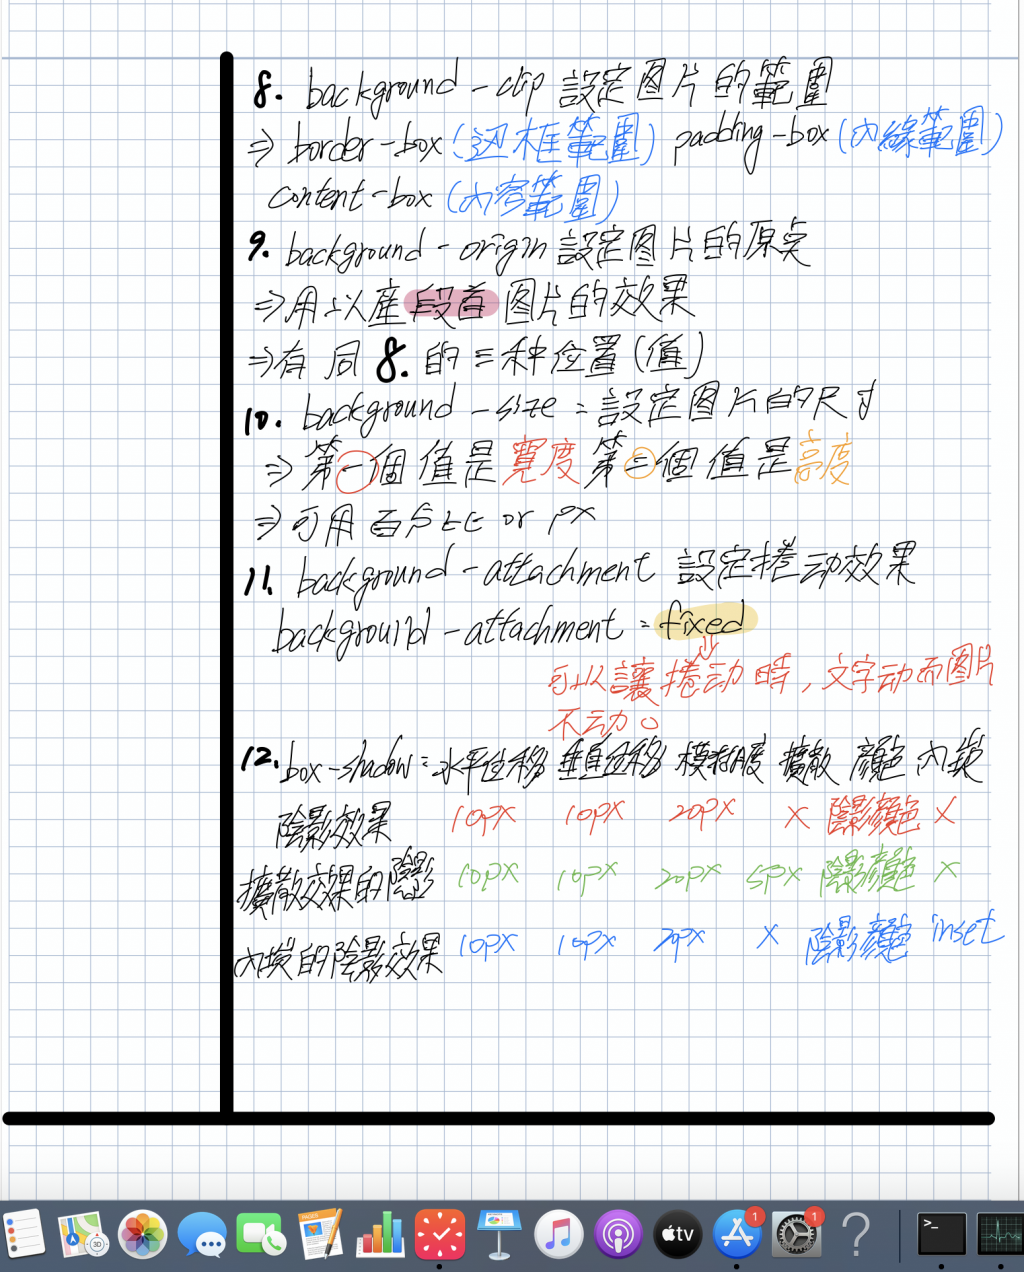 8. background-clip 設定图片的範圍
⇒ border-box (边框範圍) padding-box (內緣範圍)
content-box (內容範圍)
9. background-origin 設定图片的原点
⇒用以產段首图片的效果
⇒有同8.的三种位置(值)
10. background-size = 設定图片的尺寸
⇒第一個值是寬度第二個值是高度
⇒可用百分比 or px
11. background-attachment 設定捲动效果
background-attachment = fixed
可以讓捲动時,文字动而图片
不动。
12. box-shadow = 水平位移 垂直位移 模糊度 擴散 顏色 內嵌
陰影效果 10px 10px 20px X 陰影顏色 X
擴散效果的陰影 10px 10px 20px 5px 陰影顏色 X
內嵌的陰影效果 10px 10px 2px X 陰影顏色 inset
PAGES
3D
tv
1
1
>_